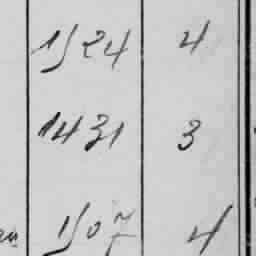 1524 4
1431 3
1507 4